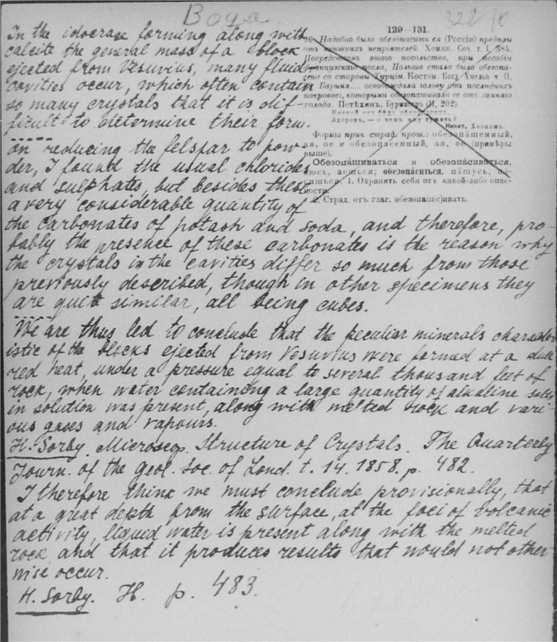 Вода
322
129—131.
In the idocrase forming along with
calcite the general mass of a block
ejected from Vesuvius, many fluid-
cavities occur, which often contain
so many crystals that it is dif-
ficult to determine their form.
on reducing the felspar to pow-
der, I found the usual chlorides
and sulphats, but besides these
a very considerable quantity of
the carbonates of potash and soda, and therefore, pro-
bably the presence of these carbonates is the reason why
the crystals in the cavities differ so much from those
previously described, though in other specimens they
are quite similar, all being cubes.
We are thus led to conclude that the peculiar minerals character-
istic of the blocks ejected from Vesuvius were formed at a dull
red heat, under a pressure equal to several thousand feet of
rock, when water containing a large quantity of alkaline salts
in solution was present, along with melted rock and vari-
ous gases and vapours.
H. Sorby. Microscop. Structure of Crystals. The Quarterly
Journ. of the geol. soc. of Lond. t. 14. 1858. p. 482.
I therefore think we must conclude provisionally, that
at a great depth from the surface, at the foci of volcanic
activity, liquid water is present along with the melted
rock, and that it produces results that would not other-
wise occur.
H. Sorby. H. p. 483.
Надобно было обезопасить ея (Россіи) предѣлы
Формы прич. страд. прош.: обезопа́шенный,
ая, ое и обезопа́сенный, ая, ое (примѣры
выше).
Обезопа́шиваться и обезопа́сиваться,
юсь, аешься; обезопа́ситься,
1. Охранить себя от какой-либо опас-
2. Страд. от глаг. обезопа́с(ш)ивать.